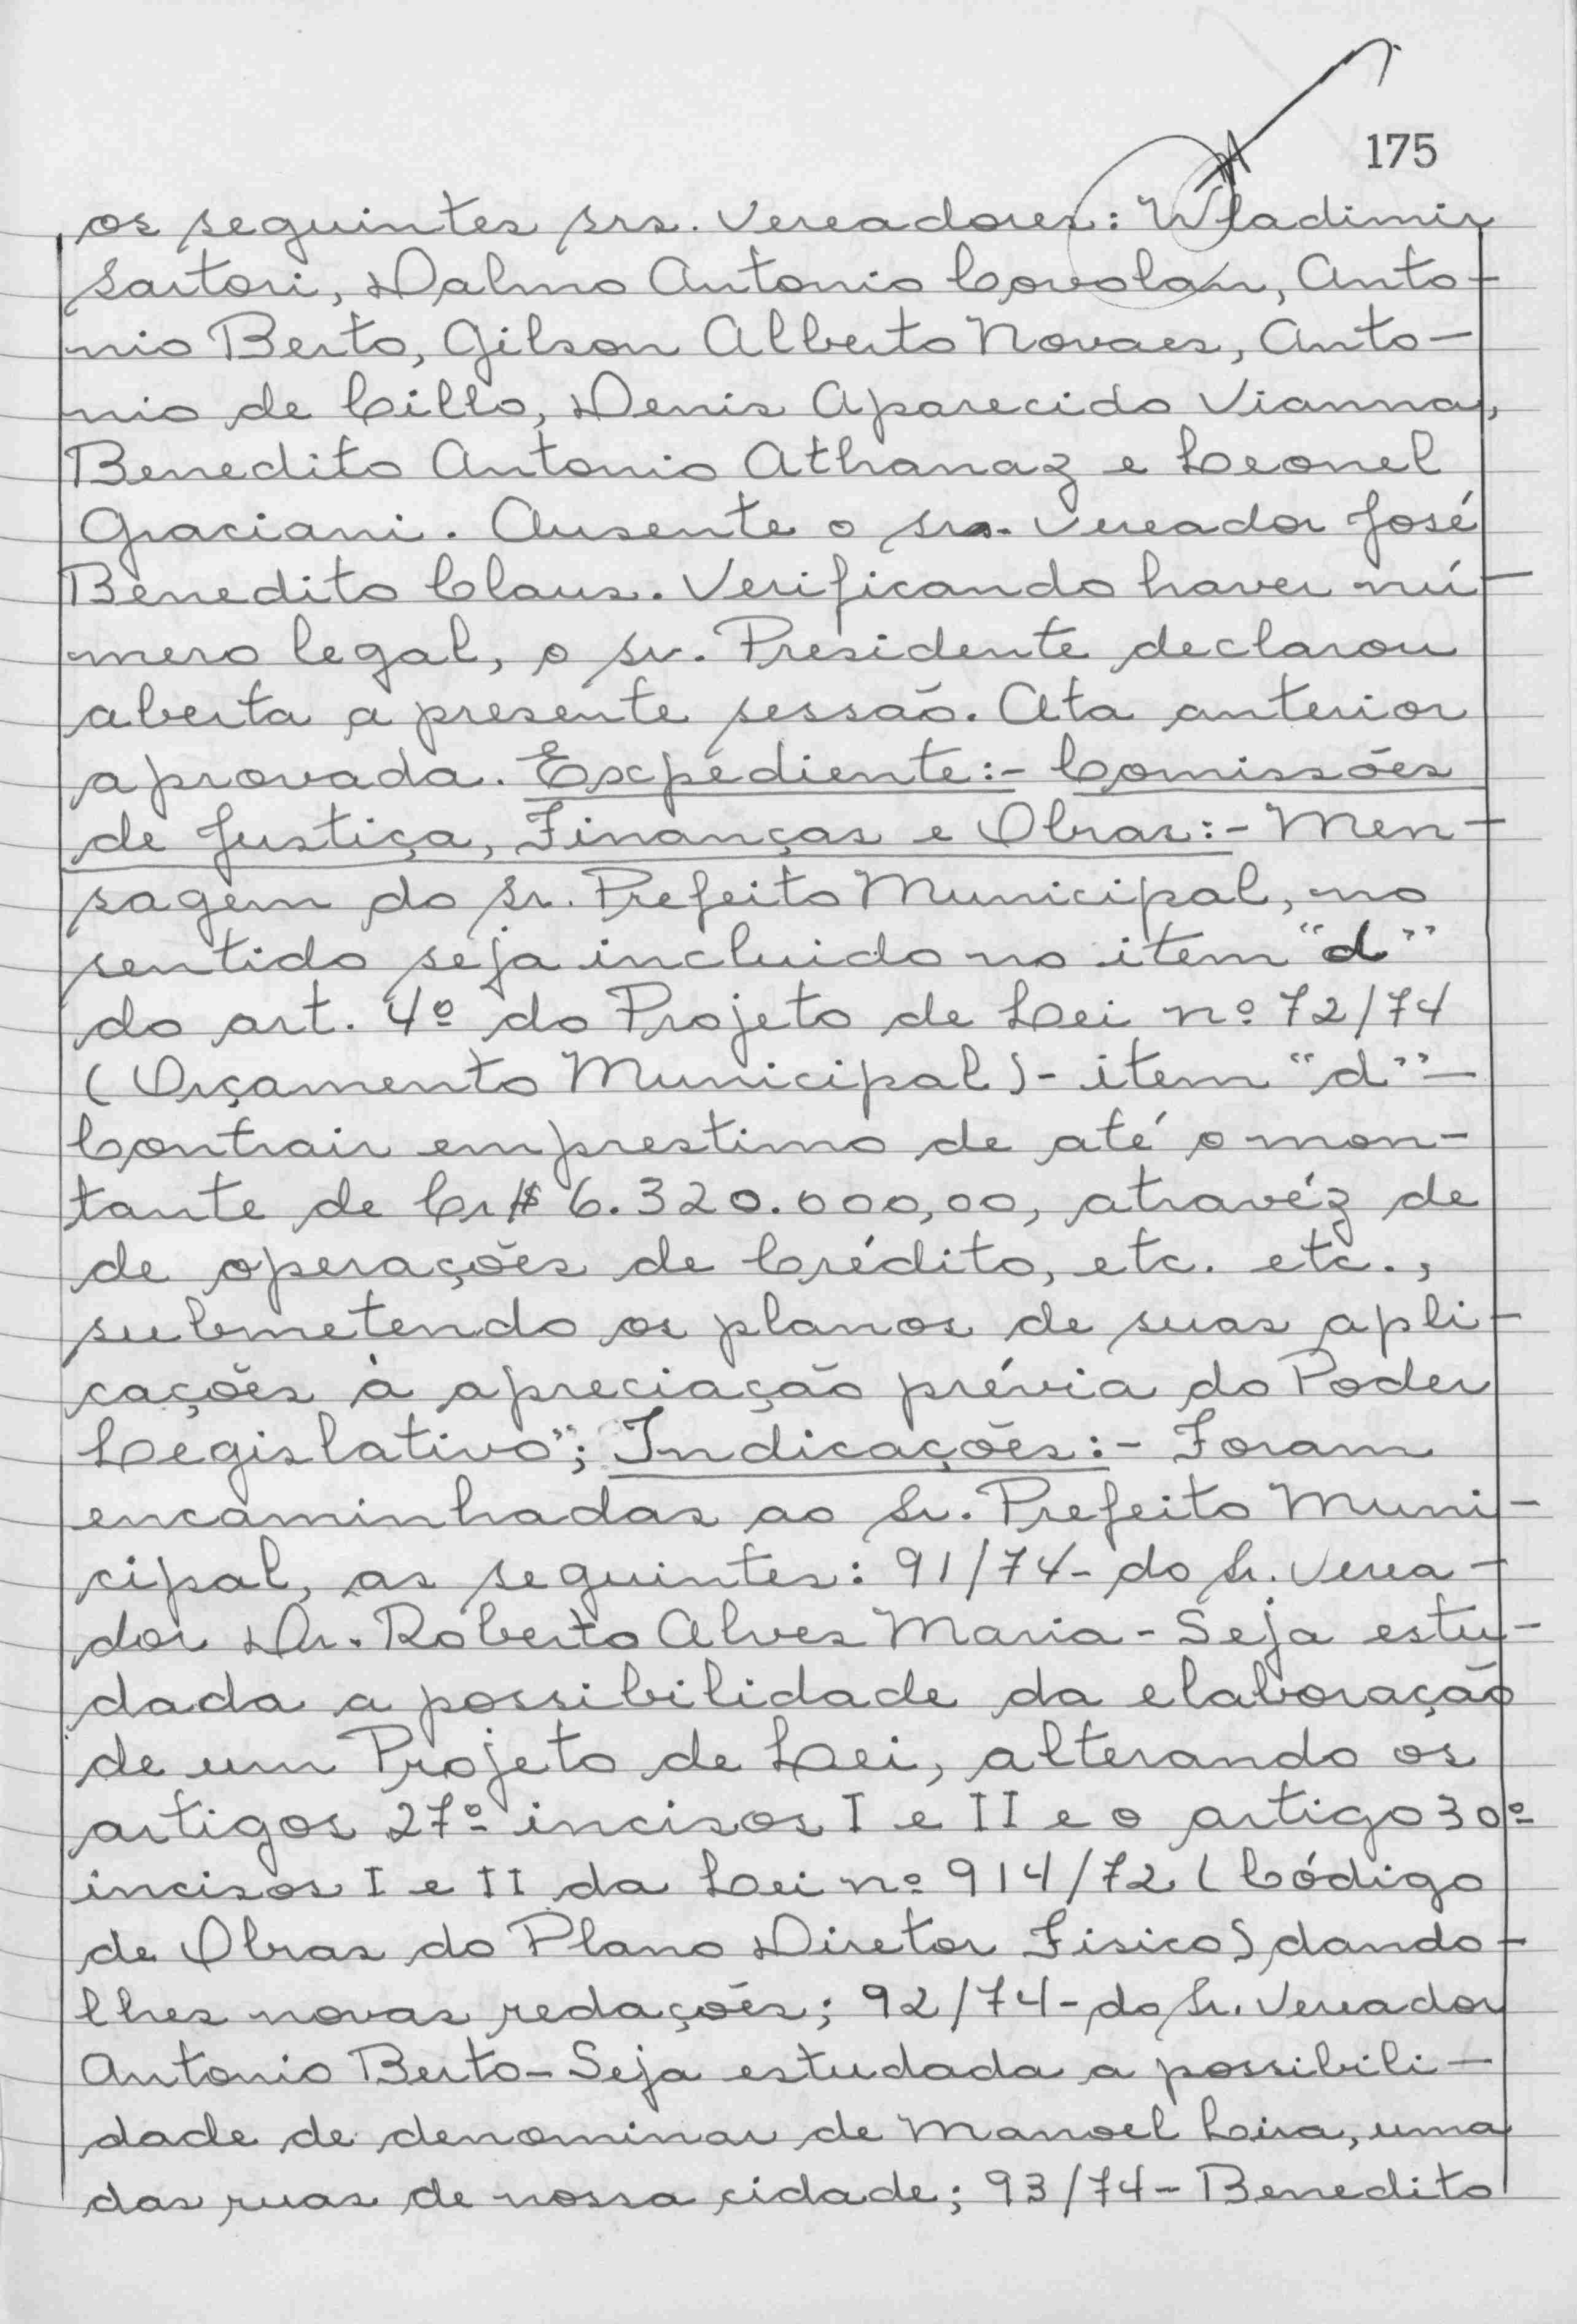 175
os seguintes srs. Vereadores: Wladimir
Sartori, Dalmo Antonio Covolan, Anto-
nio Berto, Gilson Alberto Novaes, Anto-
nio de Cillo, Denis Aparecido Vianna,
Benedito Antonio Athanaz e Leonel
Graciani. Ausente o sr. Vereador José
Benedito Claus. Verificando haver nú-
mero legal, o sr. Presidente declarou
aberta a presente sessão. Ata anterior
aprovada. Expediente:- Comissões
de Justiça, Finanças e Obras:- Men-
sagem do Sr. Prefeito Municipal, no
sentido seja incluido no item "d"
do art. 4º do Projeto de Lei nº 72/74
(Orçamento Municipal)- item "d"-
Contrair emprestimo de até o mon-
tante de Cr$ 6.320.000,00, atravéz de
de operações de Crédito, etc. etc.,
submetendo os planos de suas apli-
cações à apreciação prévia do Poder
Legislativo"; Indicações:- Foram
encaminhadas ao Sr. Prefeito Muni-
cipal, as seguintes: 91/74- do Sr. Verea-
dor Dr. Roberto Alves Maria - Seja estu-
dada a possibilidade da elaboração
de um Projeto de Lei, alterando os
artigos 27º incisos I e II e o artigo 30º
incisos I e II da Lei nº 914/72 (Código
de Obras do Plano Diretor Fisico) dando-
lhes novas redações; 92/74- do Sr. Vereador
Antonio Berto- Seja estudada a possibili-
dade de denominar de Manoel Lira, uma
das ruas de nossa cidade; 93/74- Benedito